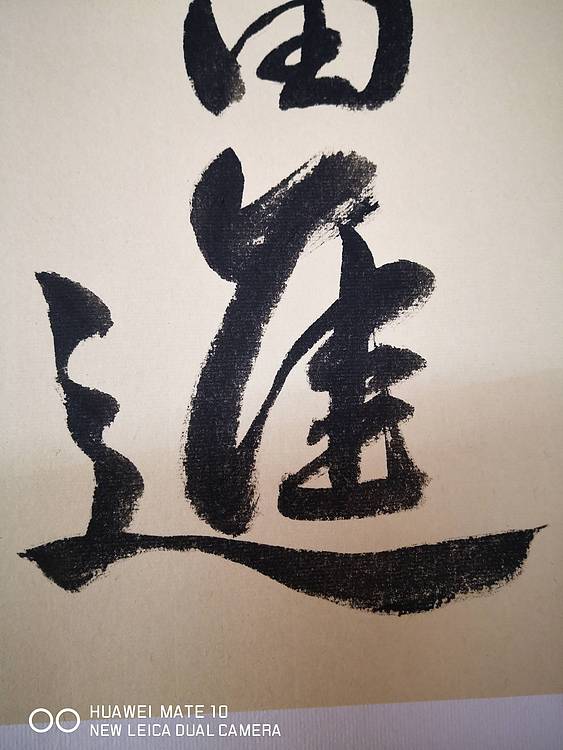 進
HUAWEI MATE 10
NEW LEICA DUAL CAMERA